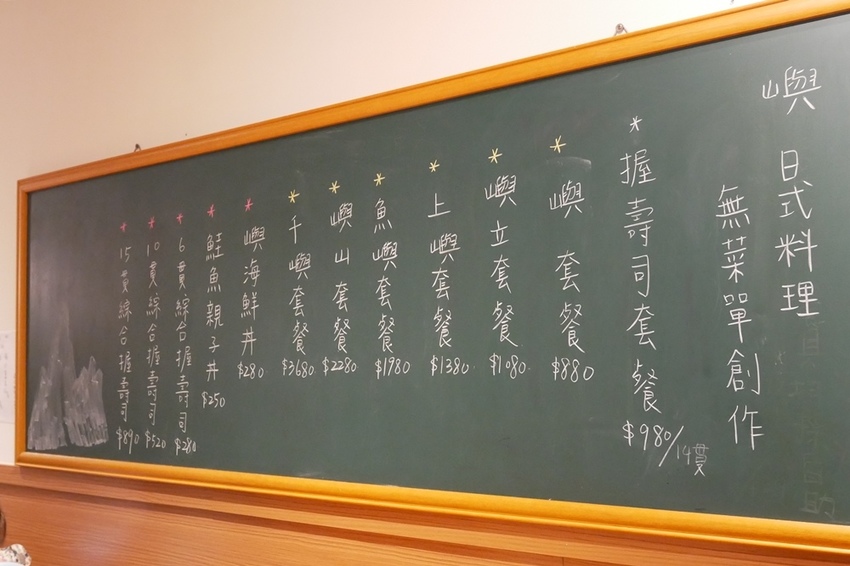 嶼 日式料理
無菜單創作
*握壽司套餐 $980/14貫
*嶼 套餐 $880
*嶼立套餐 $1080
*上嶼套餐 $1380
*魚嶼套餐 $1980
*嶼山套餐 $2280
*千嶼套餐 $3680
*嶼海鮮丼 $280
*鮭魚親子丼 $250
*6貫綜合握壽司 $280
*10貫綜合握壽司 $520
*15貫綜合握壽司 $890